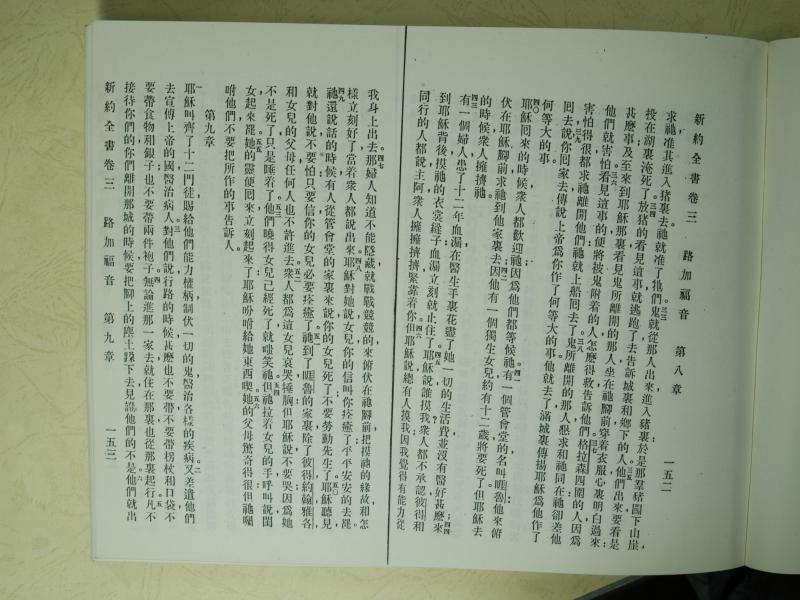 新約全書卷三　路加福音　第八章　一五二
求祂准其進入猪裏去祂就准了牠們鬼就從那人出來進入猪裏於是那羣猪闖下山崖
投在湖裏淹死了放猪的看見這事就逃跑了去告訴城裏和鄉下的人他們出來要看是
甚麽事及至來到耶穌那裏看見鬼所離開的那人坐在祂腳前穿着衣服心裏明白過來
他們就害怕看見這事的便將被鬼附着的人怎麽得救告訴他們格拉森四圍的人因爲
害怕得很都求祂離開他們祂就上船囘去了鬼所離開的那人懇求和祂同在祂卻差他
囘去說你囘家去傳說上帝爲你作了何等大的事他就去了滿城裏傳揚耶穌爲他作了
何等大的事
耶穌囘來的時候衆人都歡迎祂因爲他們都等候祂有一個管會堂的名叫睚魯他來俯
伏在耶穌腳前求祂到他家裏去因他有一個獨生女兒約有十二歲將要死了但耶穌去
的時候衆人擁擠祂
有一個婦人患了十二年血漏在醫生手裏花盡了她一切的生活費並沒有醫好甚麽來
到耶穌背後摸祂的衣裳繸子血漏立刻就止住了耶穌說誰摸我衆人都不承認彼得和
同行的人都說主阿衆人擁擁擠擠緊靠着你但耶穌說總有人摸我因我覺得有能力從
我身上出去那婦人知道不能隱藏就戰戰兢兢的來俯伏在祂腳前把摸祂的緣故和怎
樣立刻好了當着衆人都說出來耶穌對她說女兒你的信叫你痊癒了平平安安的去罷
祂還說話的時候有人從管會堂的家裏來說你的女兒死了不要勞動先生了耶穌聽見
就對他說不要怕只要信你的女兒必要痊癒了祂到了睚魯的家裏除了彼得約翰雅各
和女兒的父母任何人也不許進去衆人都爲這女兒哀哭捶胸但耶穌說不要哭因爲她
不是死了只是睡着了他們曉得女兒已經死了就嗤笑祂但祂拉着女兒的手呼叫說閨
女起來罷她的靈便囘來立刻起來了耶穌吩咐給她東西喫她的父母驚奇得很但祂囑
咐他們不要把所作的事告訴人
第九章
耶穌叫齊了十二門徒賜給他們能力權柄制伏一切的鬼醫治各樣的疾病又差遣他們
去宣傳上帝的國醫治病人對他們說行路的時候甚麽也不要帶不要帶柺杖和口袋不
要帶食物和銀子也不要帶兩件袍子無論進那一家去就住在那裏也從那裏起行凡不
接待你們的你們離開那城的時候要把腳上的塵土跺下去見證他們的不是他們就出
新約全書卷三　路加福音　第九章　一五三